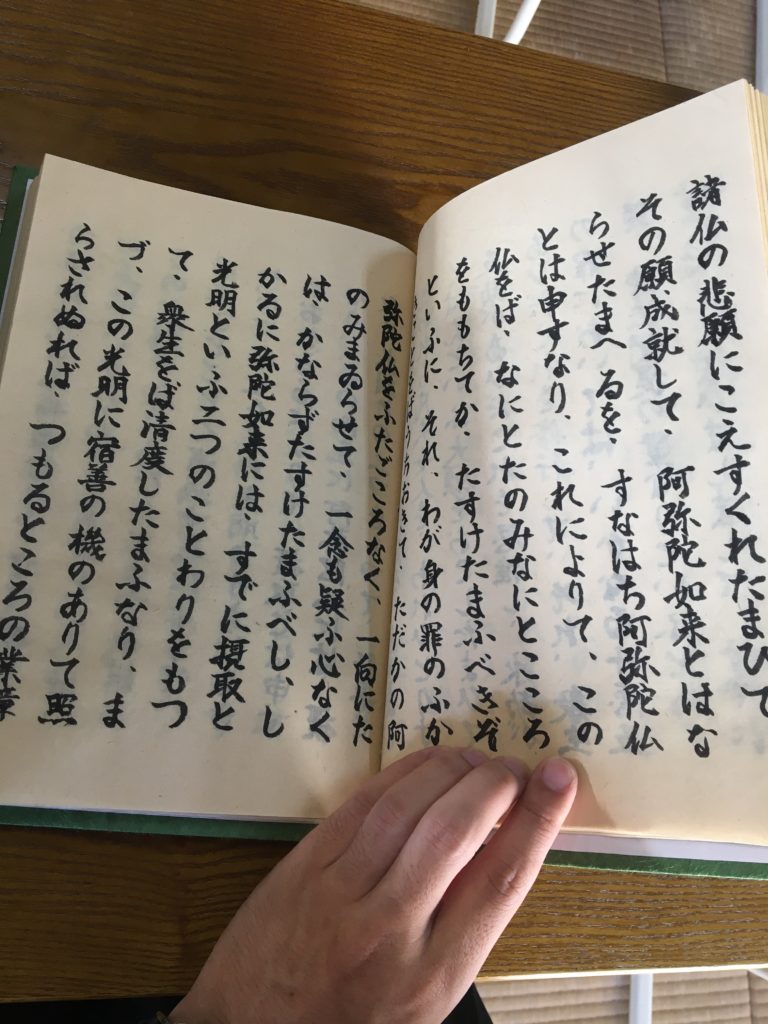 諸仏の悲願にこえすくれたまひて
その願成就して、阿弥陀如来とはな
らせたまへるを、すなはち阿弥陀仏
とは申すなり、これによりて、この
仏をば、なにとたのみなにとこころ
をももちてか、たすけたまふべきぞ
といふに、それ、わが身の罪のふか
きことをばうちおきて、ただかの阿
弥陀仏をふたごころなく、一向にた
のみまゐらせて、一念も疑ふ心なく
は、かならずたすけたまふべし、し
かるに弥陀如来には、すでに摂取と
光明といふ二つのことわりをもつ
て、衆生をば済度したまふなり、ま
づ、この光明に宿善の機のありて照
らされぬれば、つもるところの業障